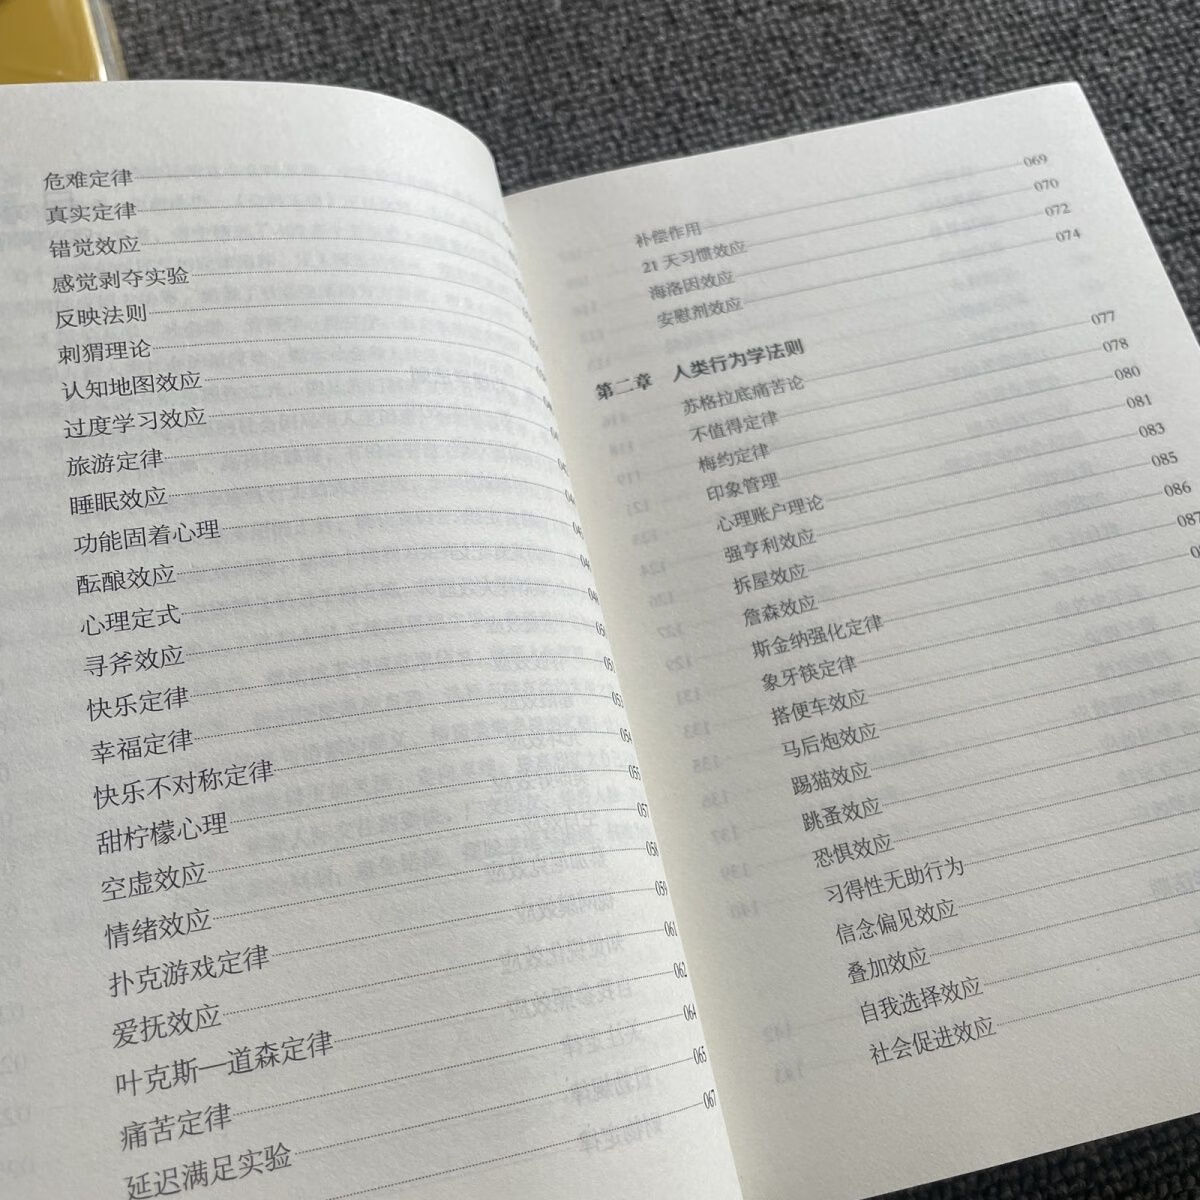 危难定律
真实定律
错觉效应
感觉剥夺实验
反映法则
刺猬理论
认知地图效应
过度学习效应
旅游定律
睡眠效应
功能固着心理
酝酿效应
心理定式
寻斧效应
快乐定律 053
幸福定律 054
快乐不对称定律 055
甜柠檬心理 057
空虚效应
情绪效应 059
扑克游戏定律 061
爱抚效应 062
叶克斯—道森定律 064
痛苦定律 065
延迟满足实验 067
补偿作用 069
21 天习惯效应 070
海洛因效应 072
安慰剂效应 074
第二章 人类行为学法则
苏格拉底痛苦论 077
不值得定律 078
梅约定律 080
印象管理 081
心理账户理论 083
强亨利效应 085
拆屋效应 086
詹森效应 087
斯金纳强化定律
象牙筷定律
搭便车效应
马后炮效应
踢猫效应
跳蚤效应
恐惧效应
习得性无助行为
信念偏见效应
叠加效应
自我选择效应
社会促进效应